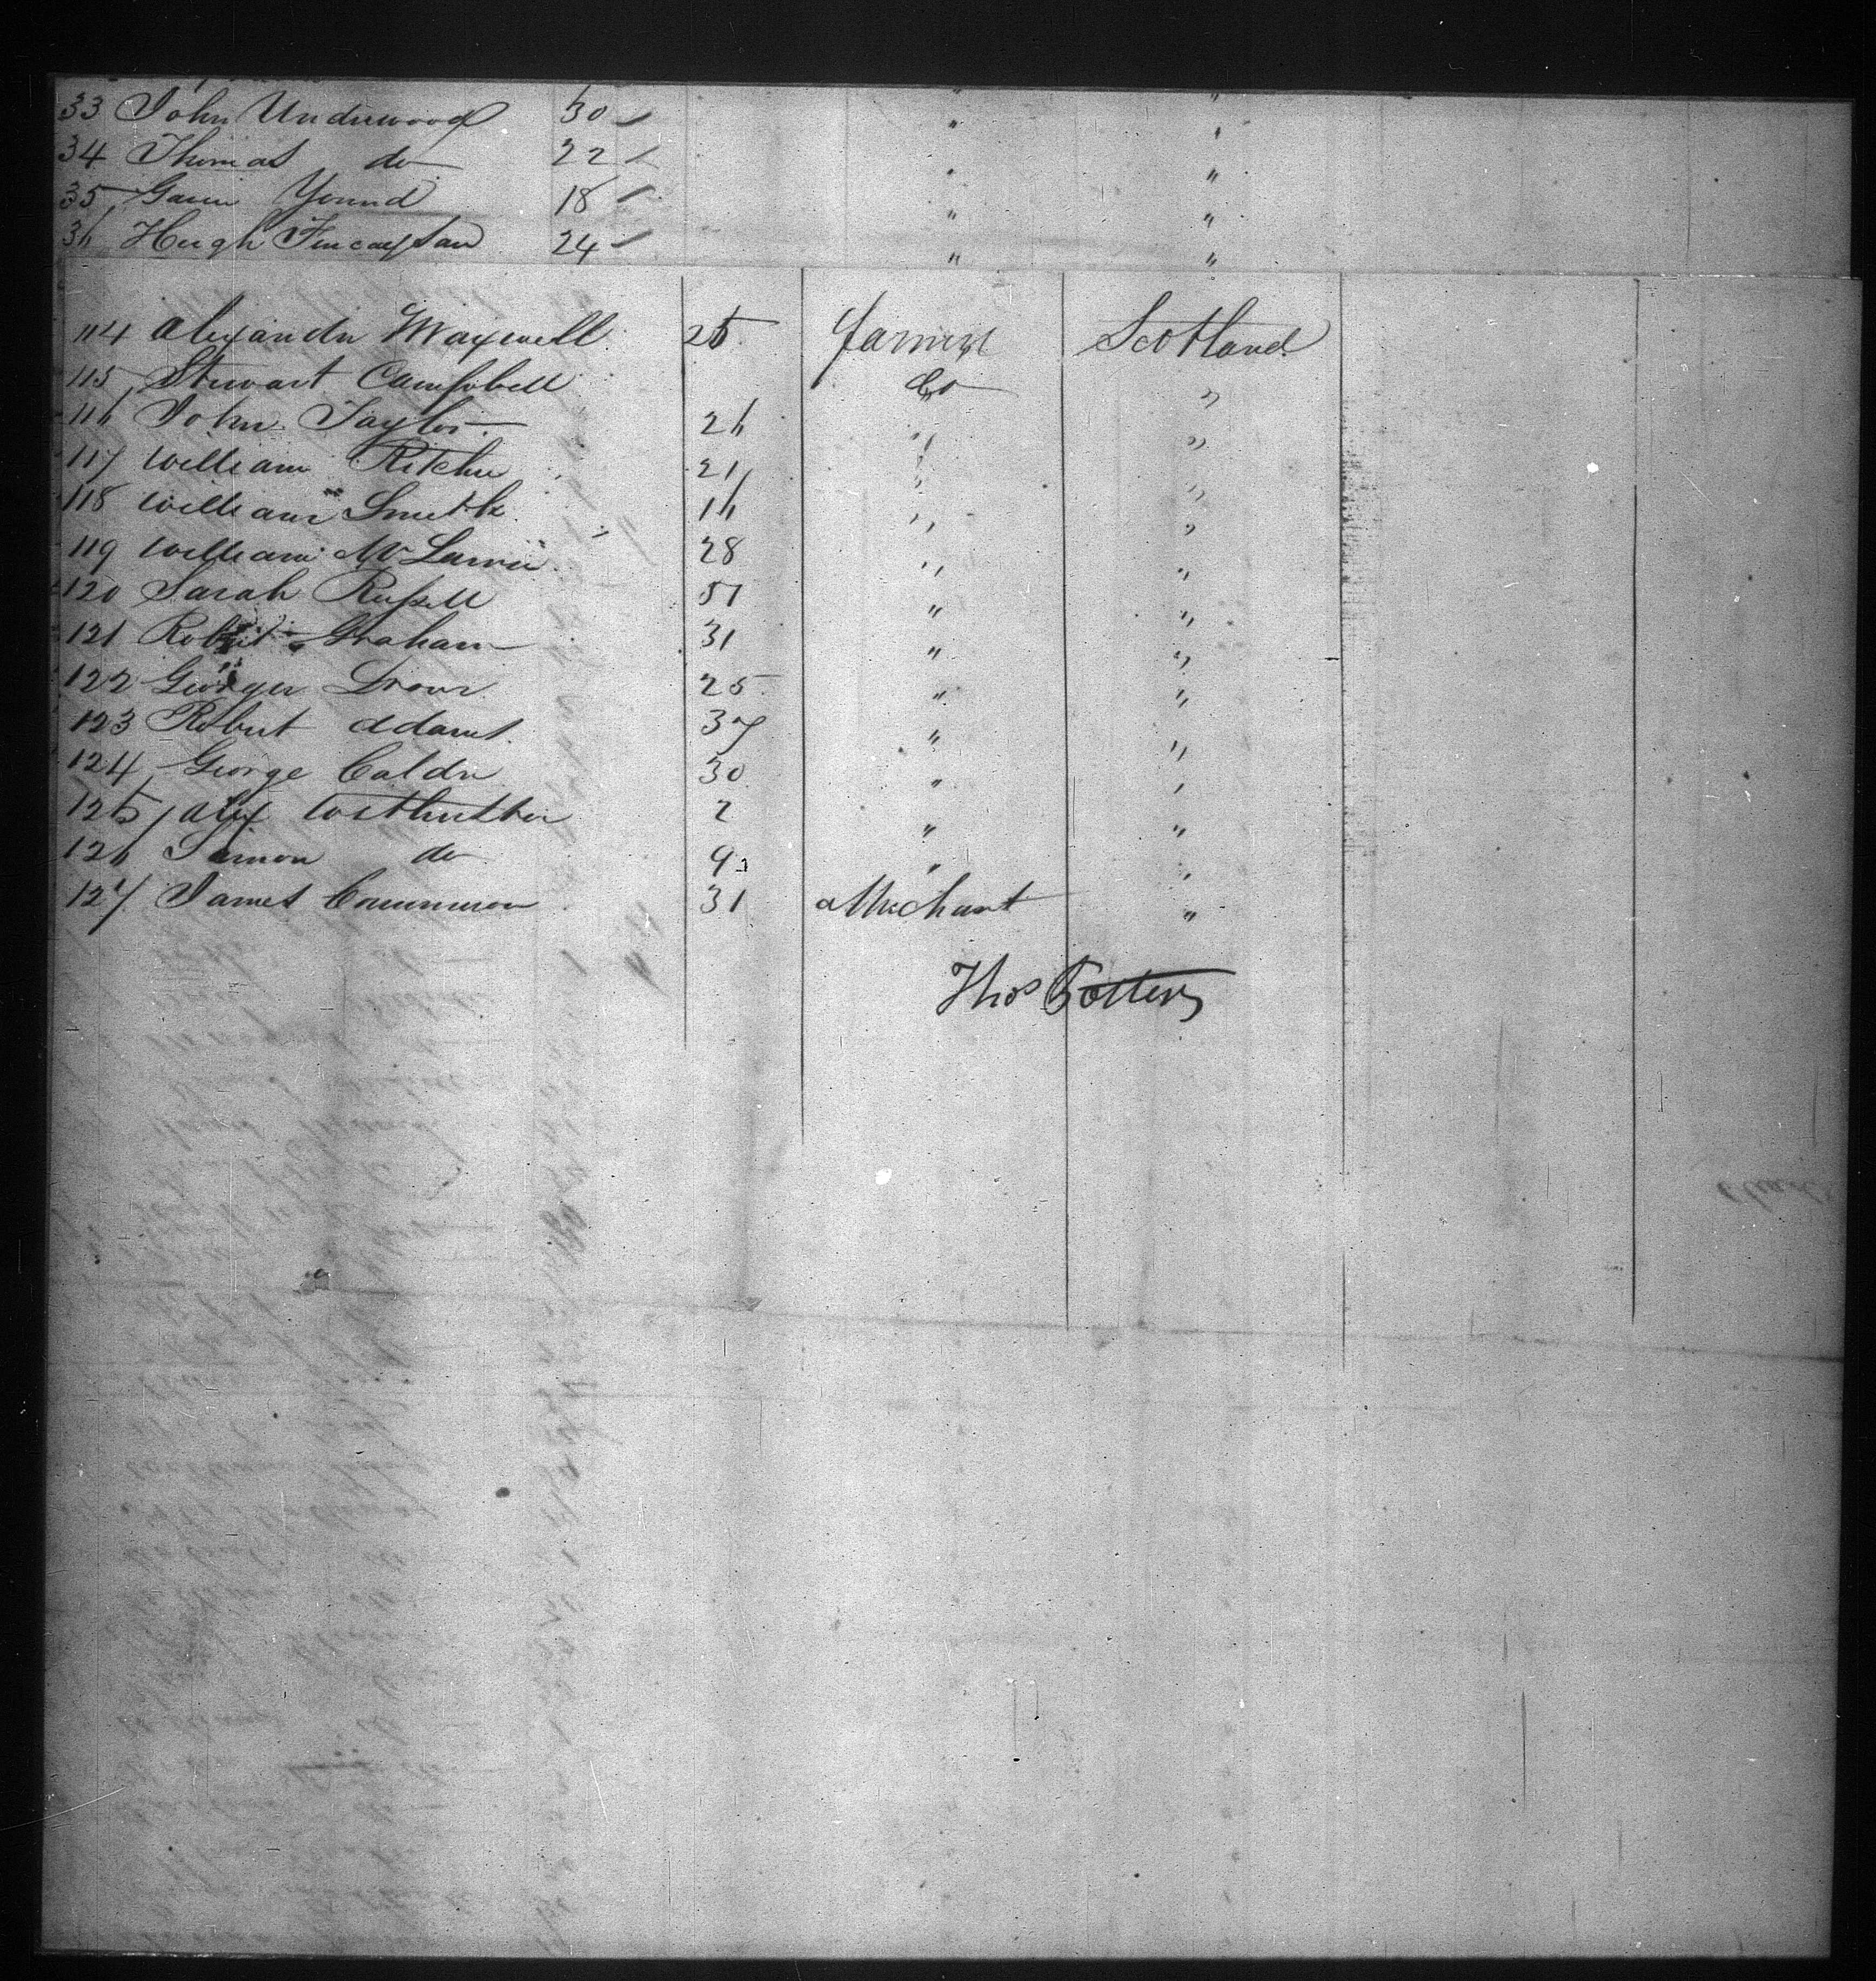 33 John Underwood 30 " "
34 Thomas do 22 " "
35 Gavin Yound 18 " "
36 Hugh Fincayson 24 " "
114 Alexander Maxwell 25 farmer Scotland
115 Stewart Campbell Do "
116 John Taylor 26 " "
117 William Ritchie 21 " "
118 William Smith 16 " "
119 William Mc 28 " "
120 Sarah Russell 51 " "
121 Robert Graham 31 " "
122 George 25 " "
123 Robert Adams 37 " "
124 George Calder 30 " "
125 Alex 2 " "
126 Simon do 9 " "
127 James 31 a Merchant "
Thos Potter